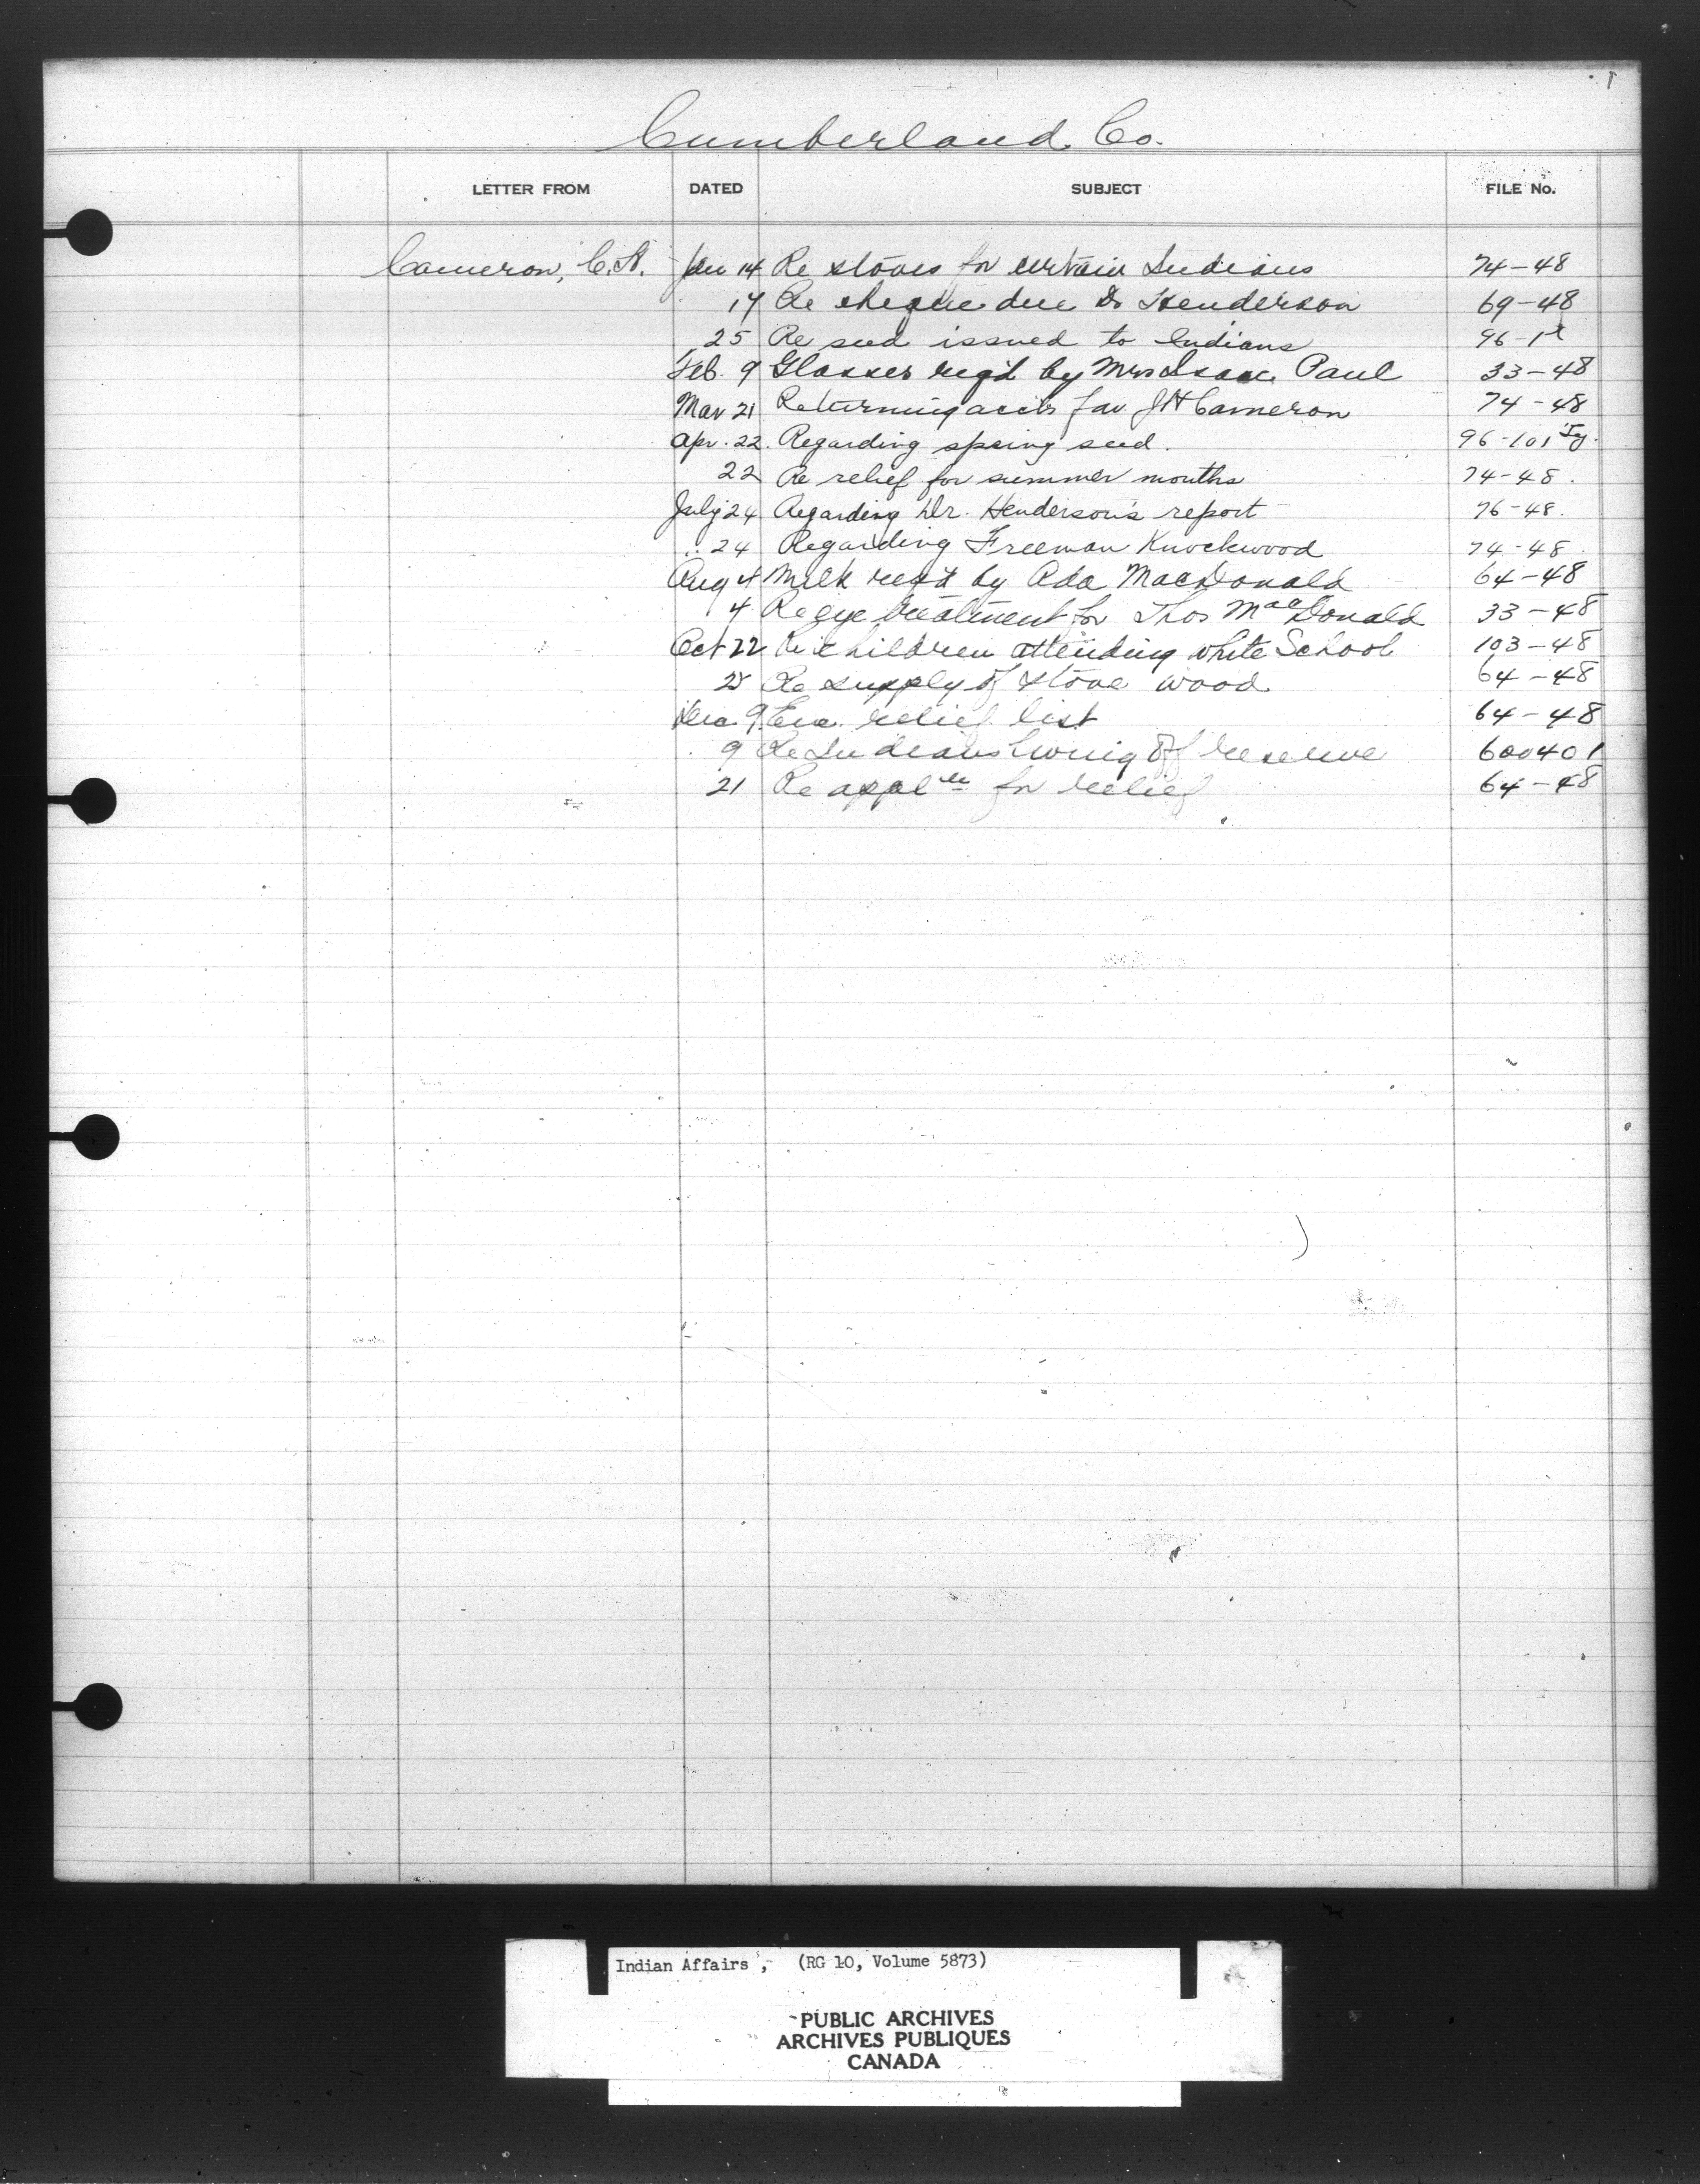 1
Cumberland Co.
LETTER FROM DATED SUBJECT FILE No.
Cameron, C.A. Jan 14 Re stoves for certain Indians 74-48
17 Re cheque due Dr Henderson 69-48
25 Re seed issued to Indians 96-1
Feb. 9 Glasses req'd by Mrs Isaac Paul 33-48
Mar 21 Returning accts fav J H Cameron 74-48
Apr. 22. Regarding spring seed. 96-101
22 Re relief for summer months 74-48.
July 24 Regarding Dr. Henderson's report 76-48.
" 24 Regarding Freeman Knockwood 74-48.
Aug 4 Milk req'd by Ada MacDonald 64-48
4 Re eye treatment for Thos MacDonald 33-48
Oct 22 Re children attending white School 103-48
25 Re supply of stove wood 64-48
Dec 9 Enc. relief list 64-48
9 Re Indians living off reserve 600401
21 Re appl'n for relief 64-48
Indian Affairs, (RG 10, Volume 5873)
PUBLIC ARCHIVES
ARCHIVES PUBLIQUES
CANADA